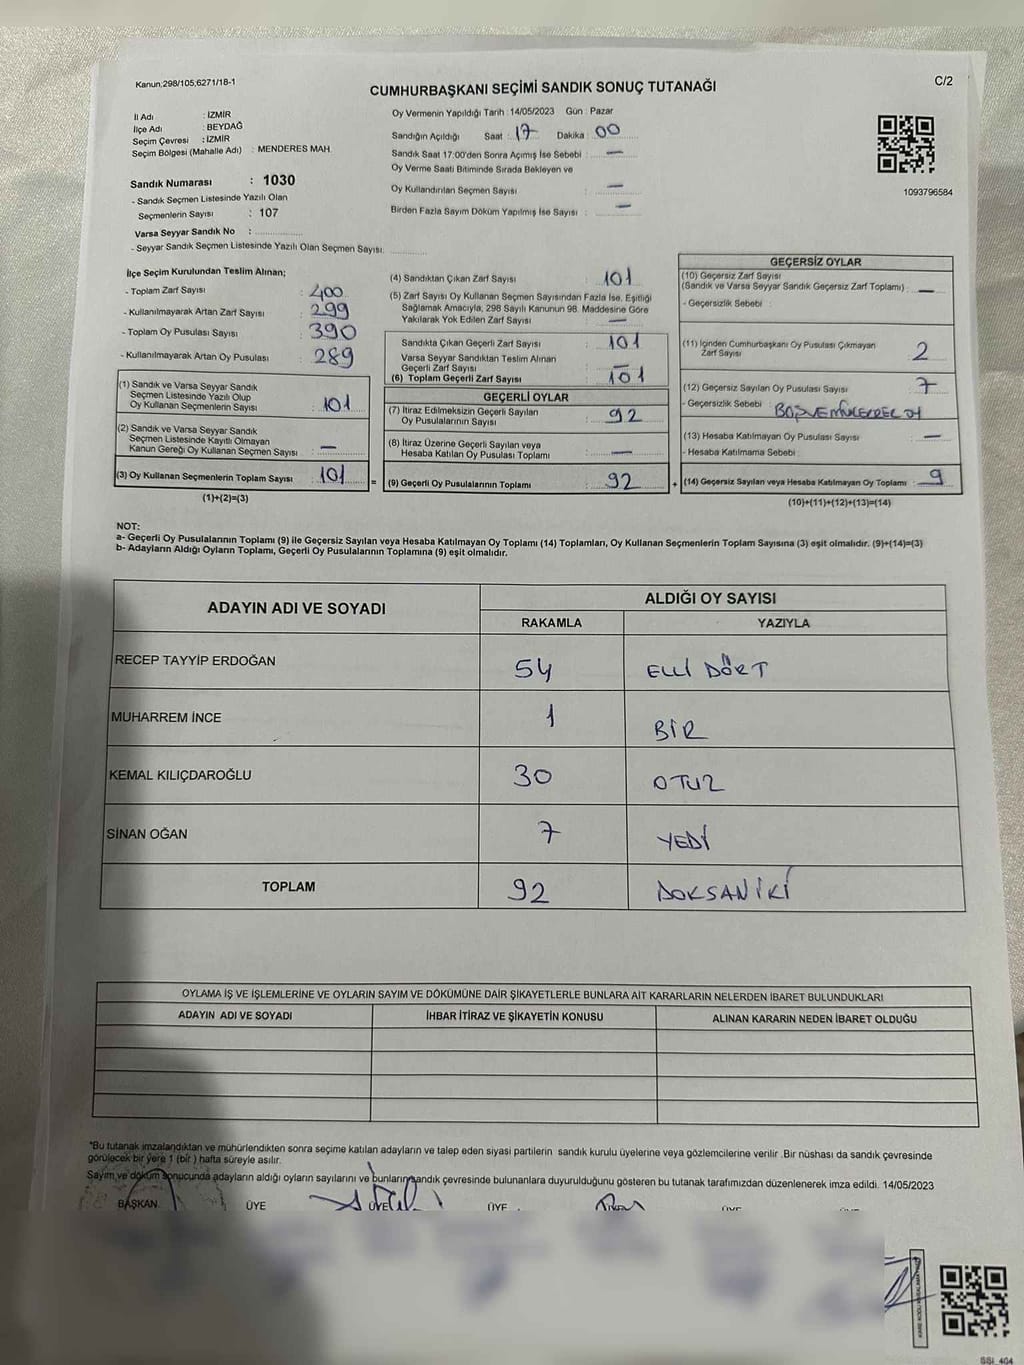 Kanun,298/105,6271/18-1
CUMHURBAŞKANI SEÇİMİ SANDIK SONUÇ TUTANAĞI
C/2
İl Adı : İZMİR
İlçe Adı : BEYDAĞ
Seçim Çevresi : İZMİR
Seçim Bölgesi (Mahalle Adı) : MENDERES MAH.
Oy Vermenin Yapıldığı Tarih : 14/05/2023 Gün : Pazar
Sandığın Açıldığı Saat : 17 Dakika : 00
Sandık Saat 17:00'den Sonra Açımış İse Sebebi : —
Oy Verme Saati Bitiminde Sırada Bekleyen ve
Oy Kullandırılan Seçmen Sayısı : —
Birden Fazla Sayım Döküm Yapılmış İse Sayısı : —
1093796584
Sandık Numarası : 1030
- Sandık Seçmen Listesinde Yazılı Olan
Seçmenlerin Sayısı : 107
Varsa Seyyar Sandık No :
- Seyyar Sandık Seçmen Listesinde Yazılı Olan Seçmen Sayısı:
İlçe Seçim Kurulundan Teslim Alınan;
- Toplam Zarf Sayısı : 400
- Kullanılmayarak Artan Zarf Sayısı : 299
- Toplam Oy Pusulası Sayısı : 390
- Kullanılmayarak Artan Oy Pusulası : 289
(1) Sandık ve Varsa Seyyar Sandık
Seçmen Listesinde Yazılı Olup
Oy Kullanan Seçmenlerin Sayısı : 101
(2) Sandık ve Varsa Seyyar Sandık
Seçmen Listesinde Kayıtlı Olmayan
Kanun Gereği Oy Kullanan Seçmen Sayısı : —
(3) Oy Kullanan Seçmenlerin Toplam Sayısı : 101 =
(1)+(2)=(3)
(4) Sandıktan Çıkan Zarf Sayısı : 101
(5) Zarf Sayısı Oy Kullanan Seçmen Sayısından Fazla İse, Eşitliği
Sağlamak Amacıyla, 298 Sayılı Kanunun 98. Maddesine Göre
Yakılarak Yok Edilen Zarf Sayısı : —
Sandıkta Çıkan Geçerli Zarf Sayısı : 101
Varsa Seyyar Sandıktan Teslim Alınan
Geçerli Zarf Sayısı : —
(6) Toplam Geçerli Zarf Sayısı : 101
GEÇERLİ OYLAR
(7) İtiraz Edilmeksizin Geçerli Sayılan
Oy Pusulalarının Sayısı : 92
(8) İtiraz Üzerine Geçerli Sayılan veya
Hesaba Katılan Oy Pusulası Toplamı : —
(9) Geçerli Oy Pusulalarının Toplamı : 92 +
GEÇERSİZ OYLAR
(10) Geçersiz Zarf Sayısı
(Sandık ve Varsa Seyyar Sandık Geçersiz Zarf Toplamı) : —
- Geçersizlik Sebebi :
(11) İçinden Cumhurbaşkanı Oy Pusulası Çıkmayan
Zarf Sayısı : 2
(12) Geçersiz Sayılan Oy Pusulası Sayısı : 7
- Geçersizlik Sebebi : BOŞ VE MÜKERRER OY
(13) Hesaba Katılmayan Oy Pusulası Sayısı : —
- Hesaba Katılmama Sebebi :
(14) Geçersiz Sayılan veya Hesaba Katılmayan Oy Toplamı : 9
(10)+(11)+(12)+(13)=(14)
NOT:
a- Geçerli Oy Pusulalarının Toplamı (9) ile Geçersiz Sayılan veya Hesaba Katılmayan Oy Toplamı (14) Toplamları, Oy Kullanan Seçmenlerin Toplam Sayısına (3) eşit olmalıdır. (9)+(14)=(3)
b- Adayların Aldığı Oyların Toplamı, Geçerli Oy Pusulalarının Toplamına (9) eşit olmalıdır.
ADAYIN ADI VE SOYADI
ALDIĞI OY SAYISI
RAKAMLA YAZIYLA
RECEP TAYYİP ERDOĞAN 54 ELLİ DÖRT
MUHARREM İNCE 1 BİR
KEMAL KILIÇDAROĞLU 30 OTUZ
SİNAN OĞAN 7 YEDİ
TOPLAM 92 DOKSANİKİ
OYLAMA İŞ VE İŞLEMLERİNE VE OYLARIN SAYIM VE DÖKÜMÜNE DAİR ŞİKAYETLERLE BUNLARA AİT KARARLARIN NELERDEN İBARET BULUNDUKLARI
ADAYIN ADI VE SOYADI İHBAR İTİRAZ VE ŞİKAYETİN KONUSU ALINAN KARARIN NEDEN İBARET OLDUĞU
*Bu tutanak imzalandıktan ve mühürlendikten sonra seçime katılan adayların ve talep eden siyasi partilerin sandık kurulu üyelerine veya gözlemcilerine verilir .Bir nüshası da sandık çevresinde
görülecek bir yere 1 (bir ) hafta süreyle asılır.
Sayım ve döküm sonucunda adayların aldığı oyların sayılarını ve bunların sandık çevresinde bulunanlara duyurulduğunu gösteren bu tutanak tarafımızdan düzenlenerek imza edildi. 14/05/2023
BAŞKAN ÜYE ÜYE ÜYE ÜYE ÜYE
SSİ_404